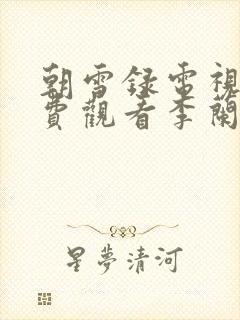 朝雪録電視
費觀看李蘭
星夢清河